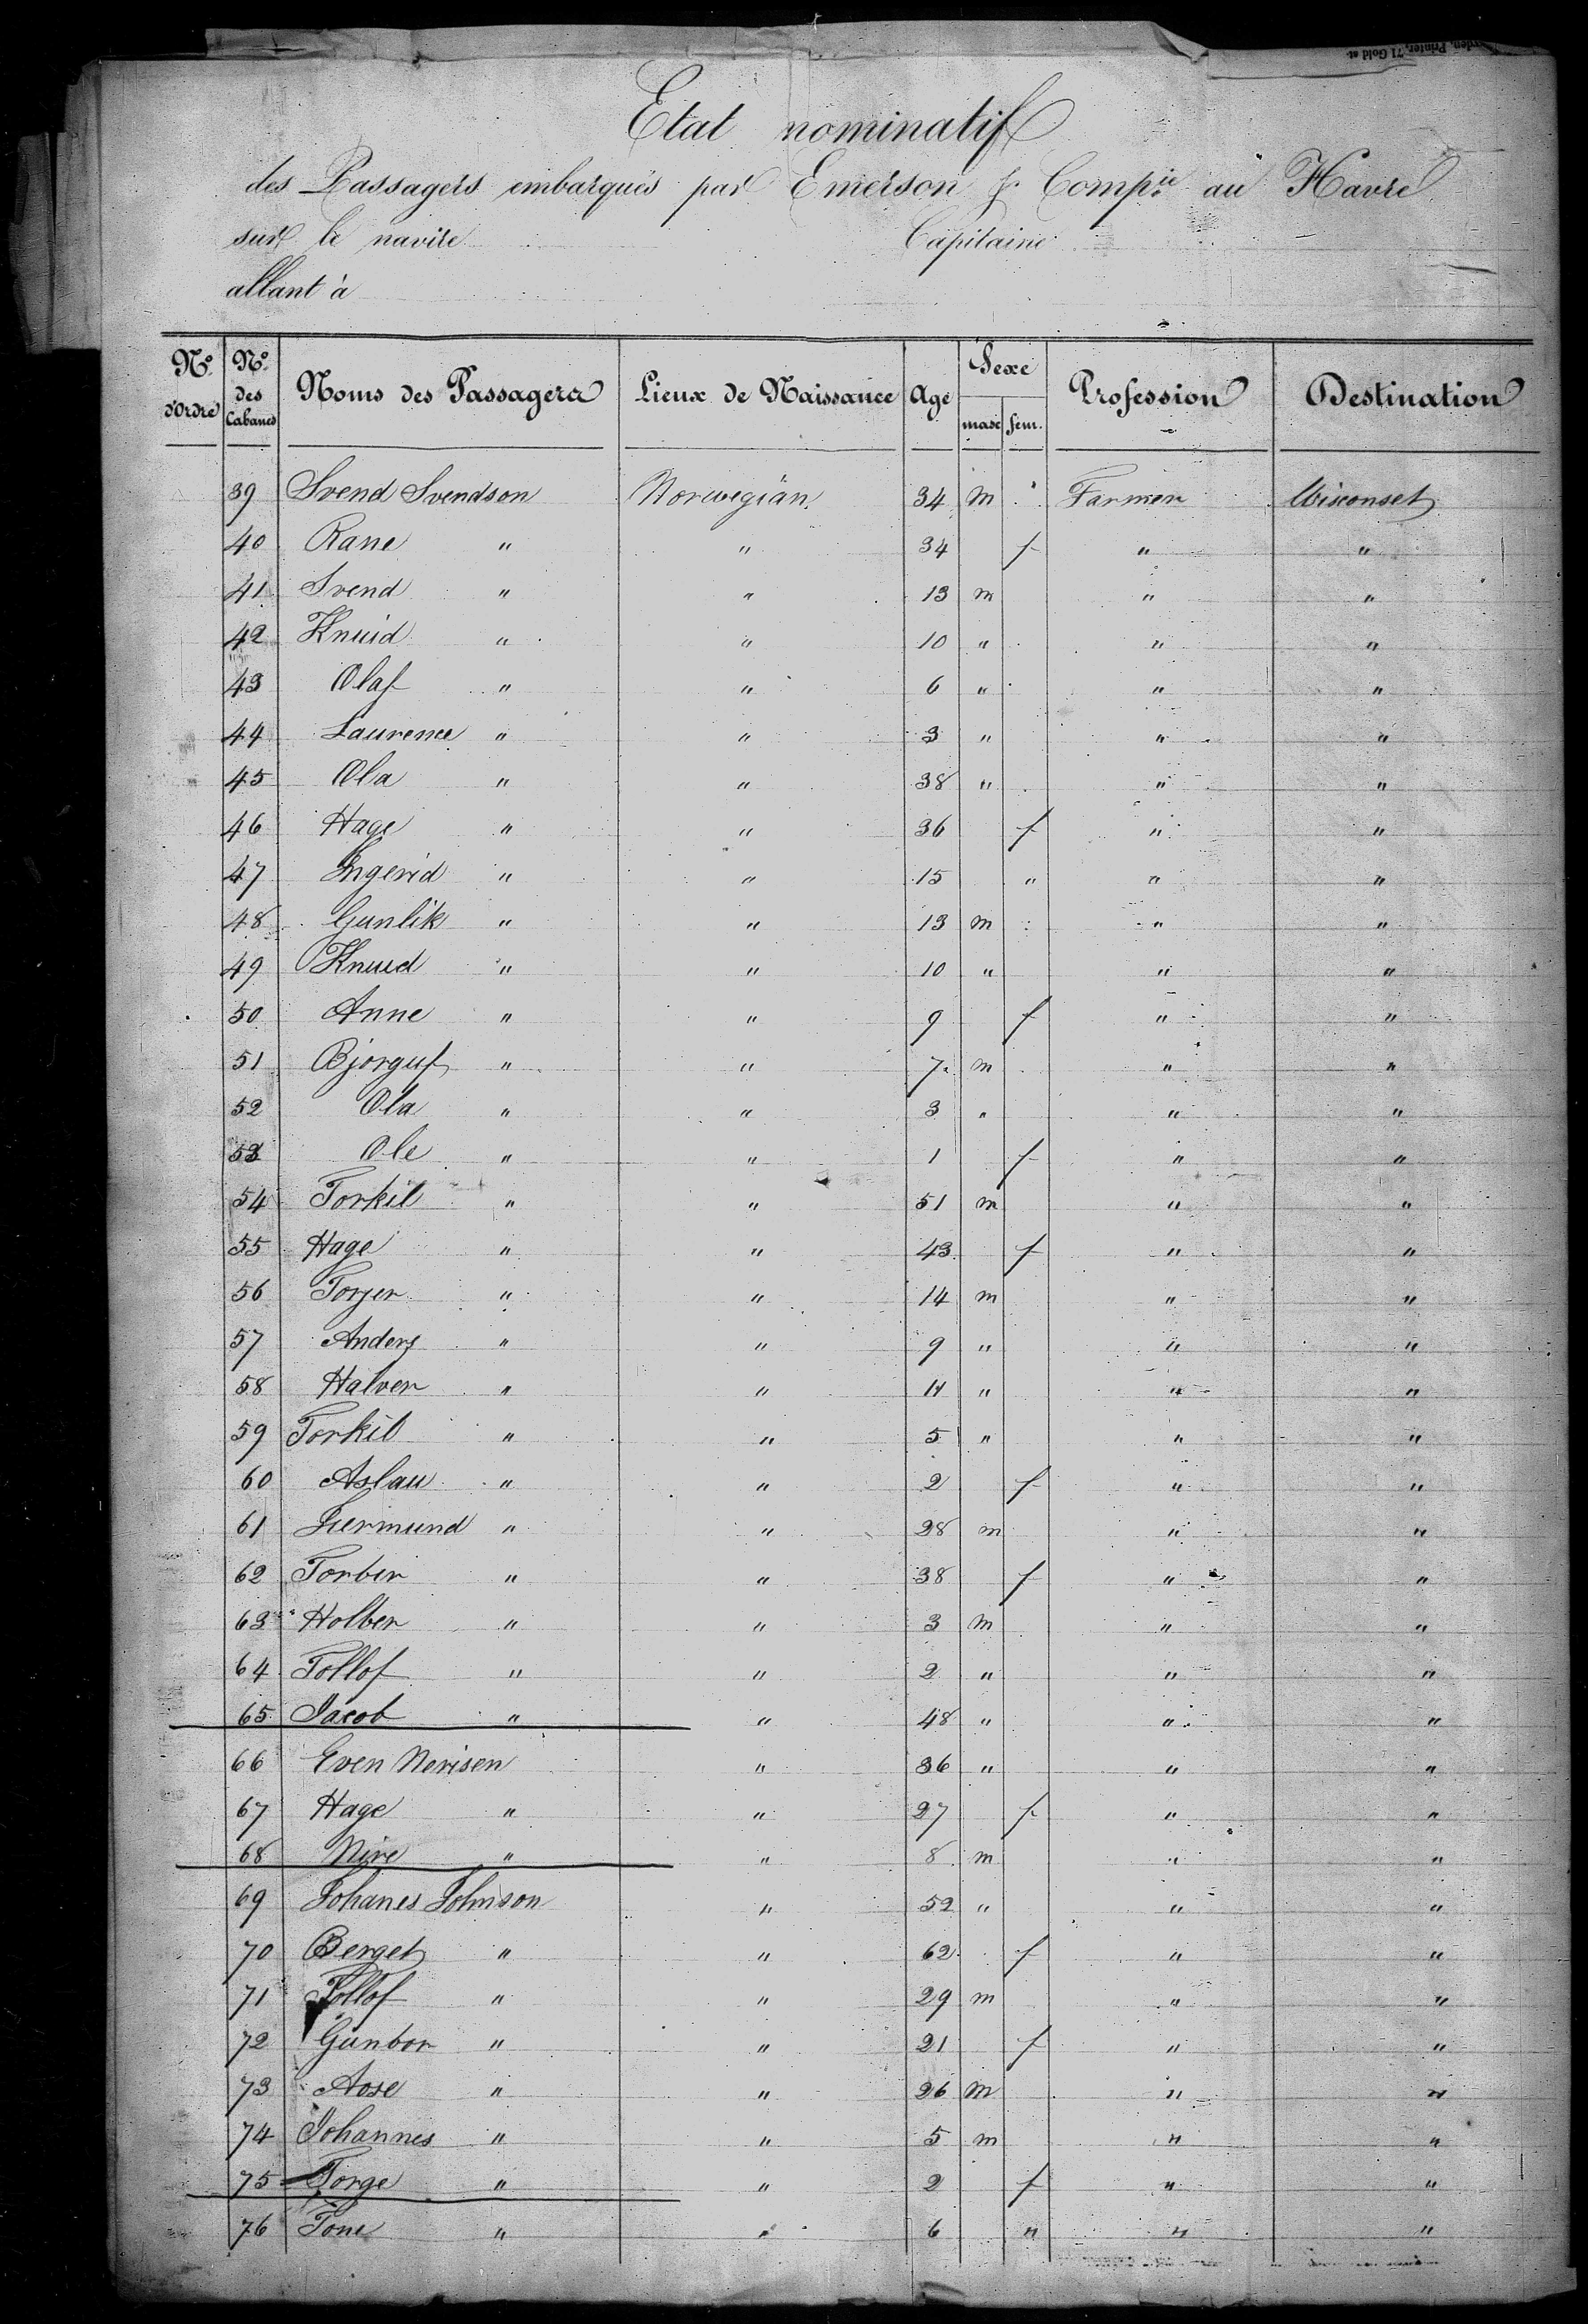 Etat nominatif
des Passagers embarqués par Emerson & Comp.ie au Havre
sur le navire Capitaine
allant à
N.º d'Ordre N.º des Cabanes Noms des Passagers Lieux de Naissance Age Sexe masc fém. Profession Destination
39 Svend Svendson Norwegian 34 m Farmer Wisconset
40 Rane " " 34 f " "
41 Svend " " 13 m " "
42 Knuid " " 10 " " "
43 Olaf " " 6 " " "
44 Laurence " " 3 " " "
45 Ola " " 38 " " "
46 Hage " " 36 f " "
47 Ingerid " " 15 " " "
48 Gunlik " " 13 m " "
49 Knud " " 10 " " "
50 Anne " " 9 f " "
51 Bjorguf " " 7 m " "
52 Ola " " 3 " " "
53 Ole " " 1 f " "
54 Torkil " " 51 m " "
55 Hage " " 43 f " "
56 Torjer " " 14 m " "
57 Anders " " 9 " " "
58 Halver " " 11 " " "
59 Torkil " " 5 " " "
60 Aslau " " 2 f " "
61 " " 28 m " "
62 Torber " " 38 f " "
63 Holber " " 3 m " "
64 Tollof " " 2 " " "
65 Jacob " " 48 " " "
66 Even Nerisen " 36 " " "
67 Hage " " 27 f " "
68 Nire " " 8 m " "
69 Johanes Johnson " 52 " " "
70 Berget " " 62 f " "
71 Tollof " " 29 m " "
72 Gunbor " " 21 f " "
73 Aose " " 26 m " "
74 Johannes " " 5 m " "
75 Torge " " 2 f " "
76 Tone " " 6 " " "